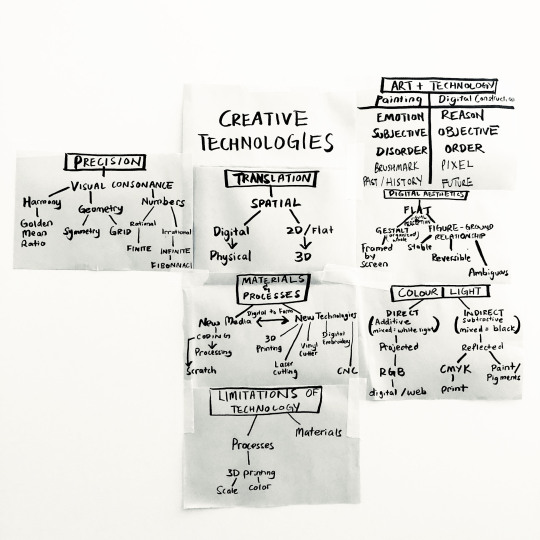 CREATIVE
TECHNOLOGIES
ART + TECHNOLOGY
Painting Digital
EMOTION REASON
SUBJECTIVE OBJECTIVE
DISORDER ORDER
BRUSHMARK PIXEL
PAST/HISTORY FUTURE
PRECISION
VISUAL CONSONANCE
Harmony Geometry Numbers
Golden
Mean
Ratio
Symmetry GRID
Rational Irrational
FINITE INFINITE
FIBONNACI
TRANSLATION
SPATIAL
Digital 2D/Flat
Physical 3D
DIGITAL AESTHETICS
FLAT
GESTALT FIGURE-GROUND
RELATIONSHIP
Framed
by
screen
Stable Reversible
Ambiguous
MATERIALS
&
PROCESSES
Digital to Form
New Media New Technologies
CODING
Processing
Scratch
3D
Printing
Laser
cutting
Vinyl
cutter
Digital
Embroidery
CNC
COLOUR LIGHT
DIRECT INDIRECT
(Additive (Subtractive
mixed = white light) mixed = black)
Projected Reflected
RGB CMYK Paint/
Pigments
digital/web print
LIMITATIONS OF
TECHNOLOGY
Processes Materials
3D printing
Scale color